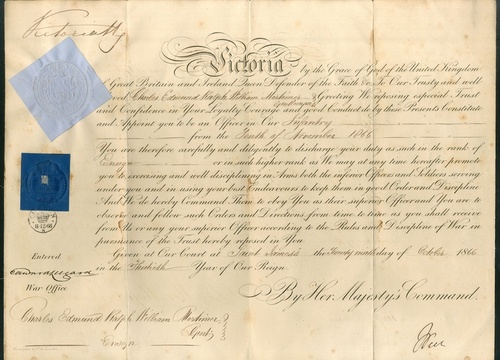 Victoria R
Victoria by the Grace of God of the United Kingdom
of Great Britain and Ireland Queen Defender of the Faith &c. To Our Trusty and well
beloved Charles Edmund Ralph William Mortimer Gentleman Greeting We reposing especial Trust
and Confidence in Your Loyalty Courage and good Conduct do by these Presents Constitute
and Appoint you to be an Officer in Our Infantry
from the Tenth of November 1866
You are therefore carefully and diligently to discharge your duty as such in the rank of
Ensign or in such higher rank as We may at any time hereafter promote
you to exercising and well disciplining in Arms both the inferior Officers and Soldiers serving
under you and in using your best Endeavours to keep them in good Order and Discipline
And We do hereby Command Them to Obey You as their superior Officer and You are to
observe and follow such Orders and Directions from time to time as you shall receive
from Us or any your superior Officer according to the Rules and Discipline of War in
pursuance of the Trust hereby reposed in You
Given at Our Court at Saint James's the day of October 1866
in the Thirtieth Year of Our Reign
By Her Majesty's Command.
Entered
War Office
Charles Edmund Ralph William Mortimer
Gent.
Ensign